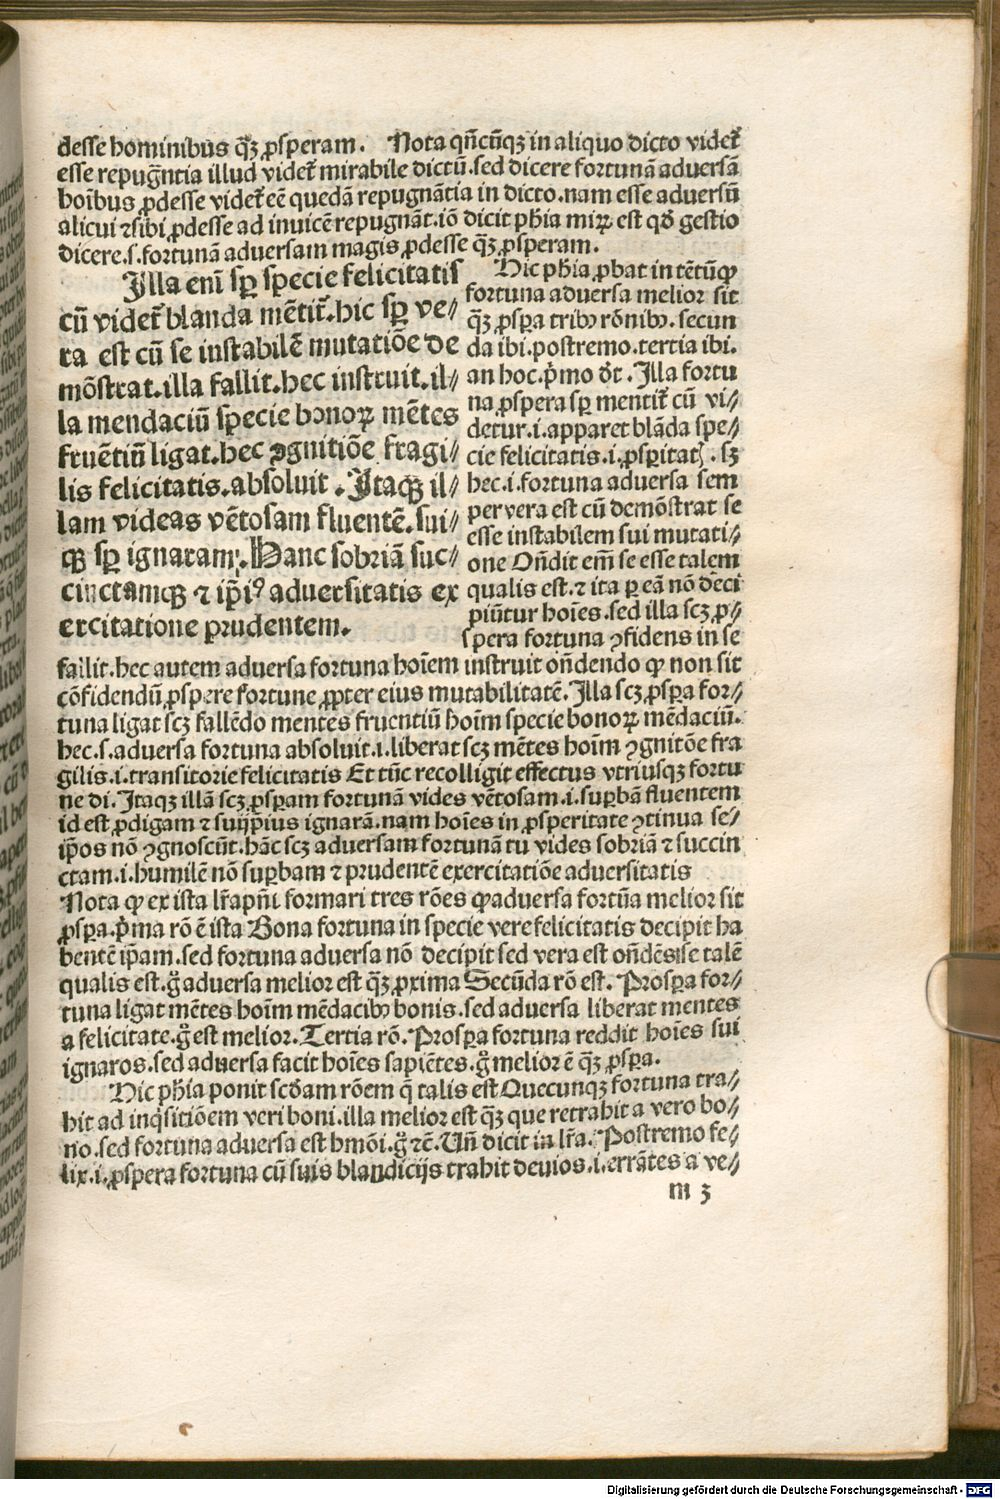 desse hominibus q̃ꝫ ꝓsperam. Nota qñcũqꝫ in aliquo dicto videt᷑
esse repugñtia illud videt᷑ mirabile dictũ. sed dicere fortunã aduersã
hoĩbus ꝓdesse videt᷑ eẽ quedã repugnãtia in dicto. nam esse aduersũ
alicui ⁊ sibi ꝓdesse ad inuicẽ repugnãt. iõ dicit pħia miꝝ est qđ gestio
dicere. s. fortunã aduersam magis ꝓdesse q̃ꝫ ꝓsperam.
Illa enĩ sꝑ specie felicitatis
cũ videt᷑ blanda mẽtit᷑. hic sꝑ ve⸗
ra est cũ se instabilẽ mutatiõe de
mõstrat. illa fallit. hec instruit. il⸗
la mendaciũ specie bonoꝝ mẽtes
fruẽtiũ ligat. hec ꝯgnitiõe fragi⸗
lis felicitatis. absoluit. Itaqꝫ il⸗
lam videas vẽtosam fluentẽ. sui⸗
qꝫ sꝑ ignaram. Hanc sobriã suc⸗
cinctamqꝫ ⁊ ip̃iꝰ aduersitatis ex
ercitatione prudentem.
Hic pħia ꝓbat in tẽtũ ꝙ
fortuna aduersa melior sit
q̃ꝫ ꝓspa tribꝰ rõnibꝰ. secun
da ibi. postremo. tertia ibi.
an hoc. p̃mo đt. Illa fortu
na ꝓspera sꝑ mentit᷑ cũ vi⸗
detur. i. apparet blãda spe⸗
cie felicitatis. i. ꝓsꝑitatꝭ. sꝫ
hec. i. fortuna aduersa sem
per vera est cũ demõstrat se
esse instabilem sui mutati⸗
one Oñdit em̃ se esse talem
qualis est. ⁊ ita ꝑ eã nõ deci
piũtur hoĩes. sed illa scꝫ ꝓ⸗
spera fortuna ꝯfidens in se
fallit. hec autem aduersa fortuna hoĩem instruit oñdendo ꝙ non sit
cõfidendũ ꝓspere fortune ꝓpter eius mutabilitatẽ. Illa scꝫ ꝓsꝑa for⸗
tuna ligat scꝫ fallẽdo mentes fruentiũ hoĩm specie bonoꝝ mẽdaciũ.
hec. s. aduersa fortuna absoluit. i. liberat scꝫ mẽtes hoĩm ꝯgnitõe fra
gilis. i. transitorie felicitatis Et tũc recolligit effectus vtriusqꝫ fortu
ne di. Itaqꝫ illã scꝫ ꝓsꝑam fortunã vides vẽtosam. i. suꝑbã fluentem
id est ꝓdigam ⁊ suijp̃ius ignarã. nam hoĩes in ꝓsperitate ꝯtinua se⸗
ip̃os nõ ꝯgnoscũt. hãc scꝫ aduersam fortunã tu vides sobriã ⁊ succin
ctam. i. humilẽ nõ suꝑbam ⁊ prudentẽ exercitatiõe aduersitatis
Nota ꝙ ex ista lr̃a pñt formari tres rões ꝙ aduersa fortũa melior sit
ꝓsꝑa. p̃ma rõ ẽ ista Bona fortuna in specie vere felicitatis decipit ha
bentẽ ip̃am. sed fortuna aduersa nõ decipit sed vera est oñdẽs se talẽ
qualis est. g̃ aduersa melior est q̃ꝫ ꝓxima Secũda rõ est. Prosꝑa for⸗
tuna ligat mẽtes hoĩm mẽdacibꝰ bonis. sed aduersa liberat mentes
a felicitate. g̃ est melior. Tertia rõ. Prosꝑa fortuna reddit hoĩes sui
ignaros. sed aduersa facit hoĩes sapiẽtes. g̃ melior ẽ q̃ꝫ ꝓsꝑa.
Hic pħia ponit scđam rõem q̃ talis est Quecunqꝫ fortuna tra⸗
hit ad inq̃sitiõem veri boni. illa melior est q̃ꝫ que retrahit a vero bo⸗
no. sed fortuna aduersa est hmõi. g̃ ⁊c̃. Uñ dicit in lr̃a. Postremo fe⸗
lix. i. ꝓspera fortuna cũ suis blandicijs trahit deuios. i. errãtes a ve⸗
m 3
Digitalisierung gefördert durch die Deutsche Forschungsgemeinschaft - DFG